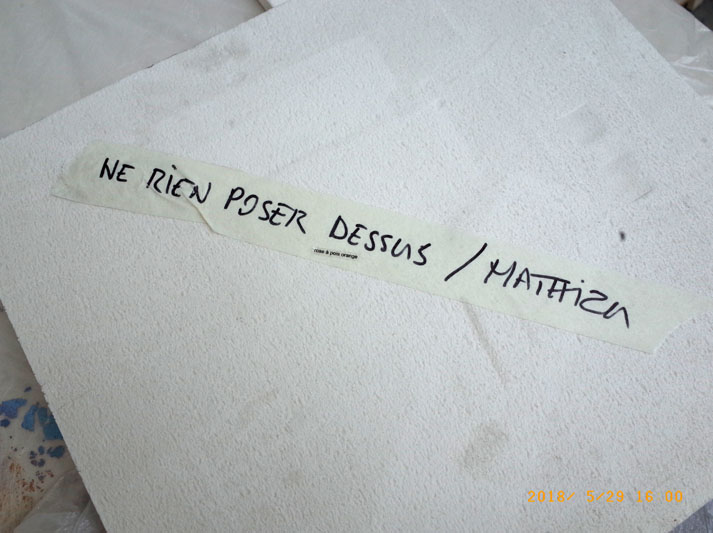 NE RIEN POSER DESSUS / MATHIZU
rose à pois orange
2018/ 5/29 16 00